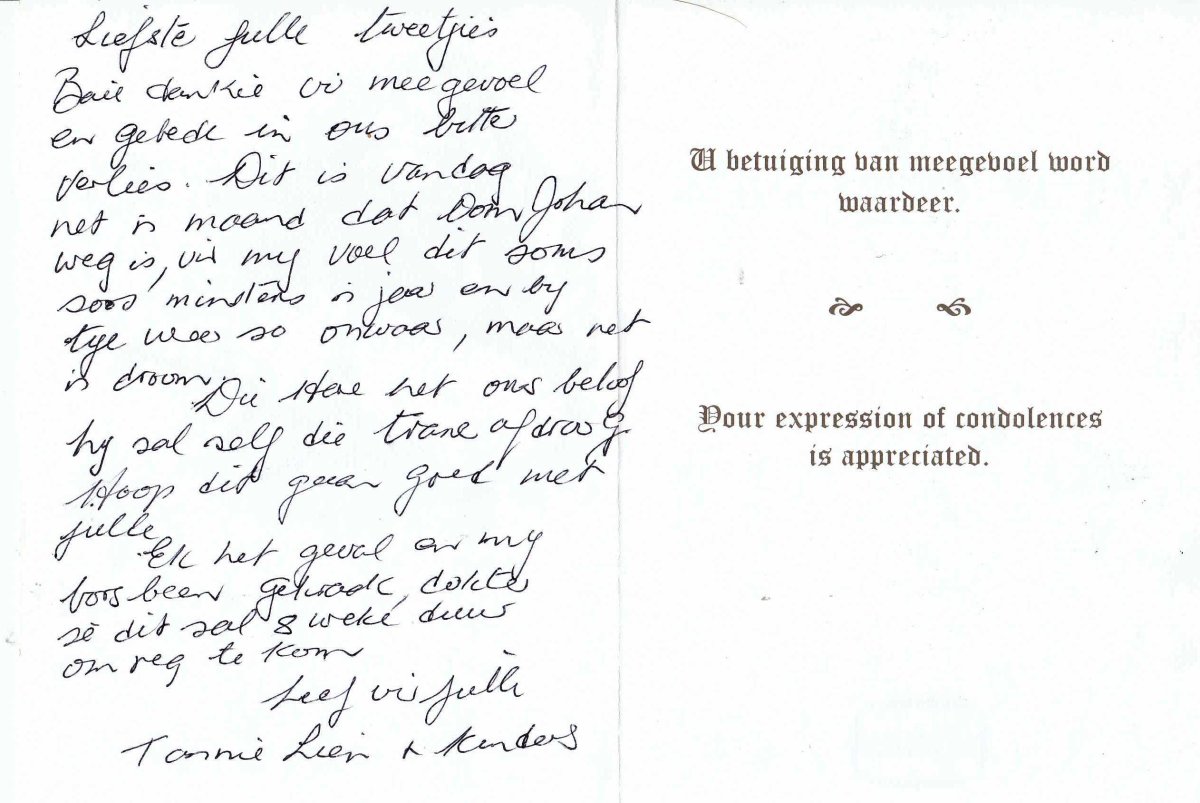 Liefste julle tweetjies
Baie dankie vir meegevoel
en gebede in ons bitter
verlies. Dit is vandag
net 'n maand dat Oom Johan
weg is, vir my voel dit soms
soos minstens 'n jaar en by
tye weer so onwaar, maar net
'n droom.
Die Here het ons beloof
hy sal self die trane afdroog.
Hoop dit gaan goed met
julle
Ek het geval en my
borsbeen gekraak, dokter
sê dit sal 8 weke duur
om reg te kom
Leef vir julle
Tannie Lien + Kinders
U betuiging van meegevoel word
waardeer.
Your expression of condolences
is appreciated.